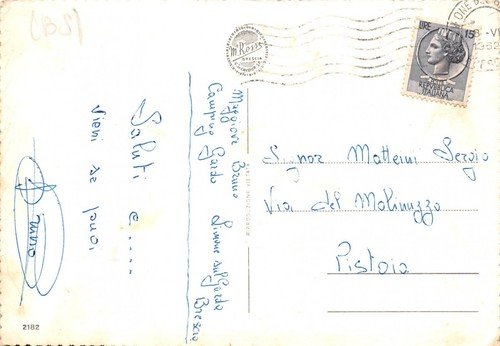 (BS)
Saluti e.....
Vieni se puoi
Bruno
Maggiore Bruno
Camping Garda Limone sul Garda
Brescia
m. Rossi
BRESCIA
LIRE 15
REPUBBLICA
ITALIANA
Signor Matteini Sergio
Via del Molinuzzo
Pistoia
2182